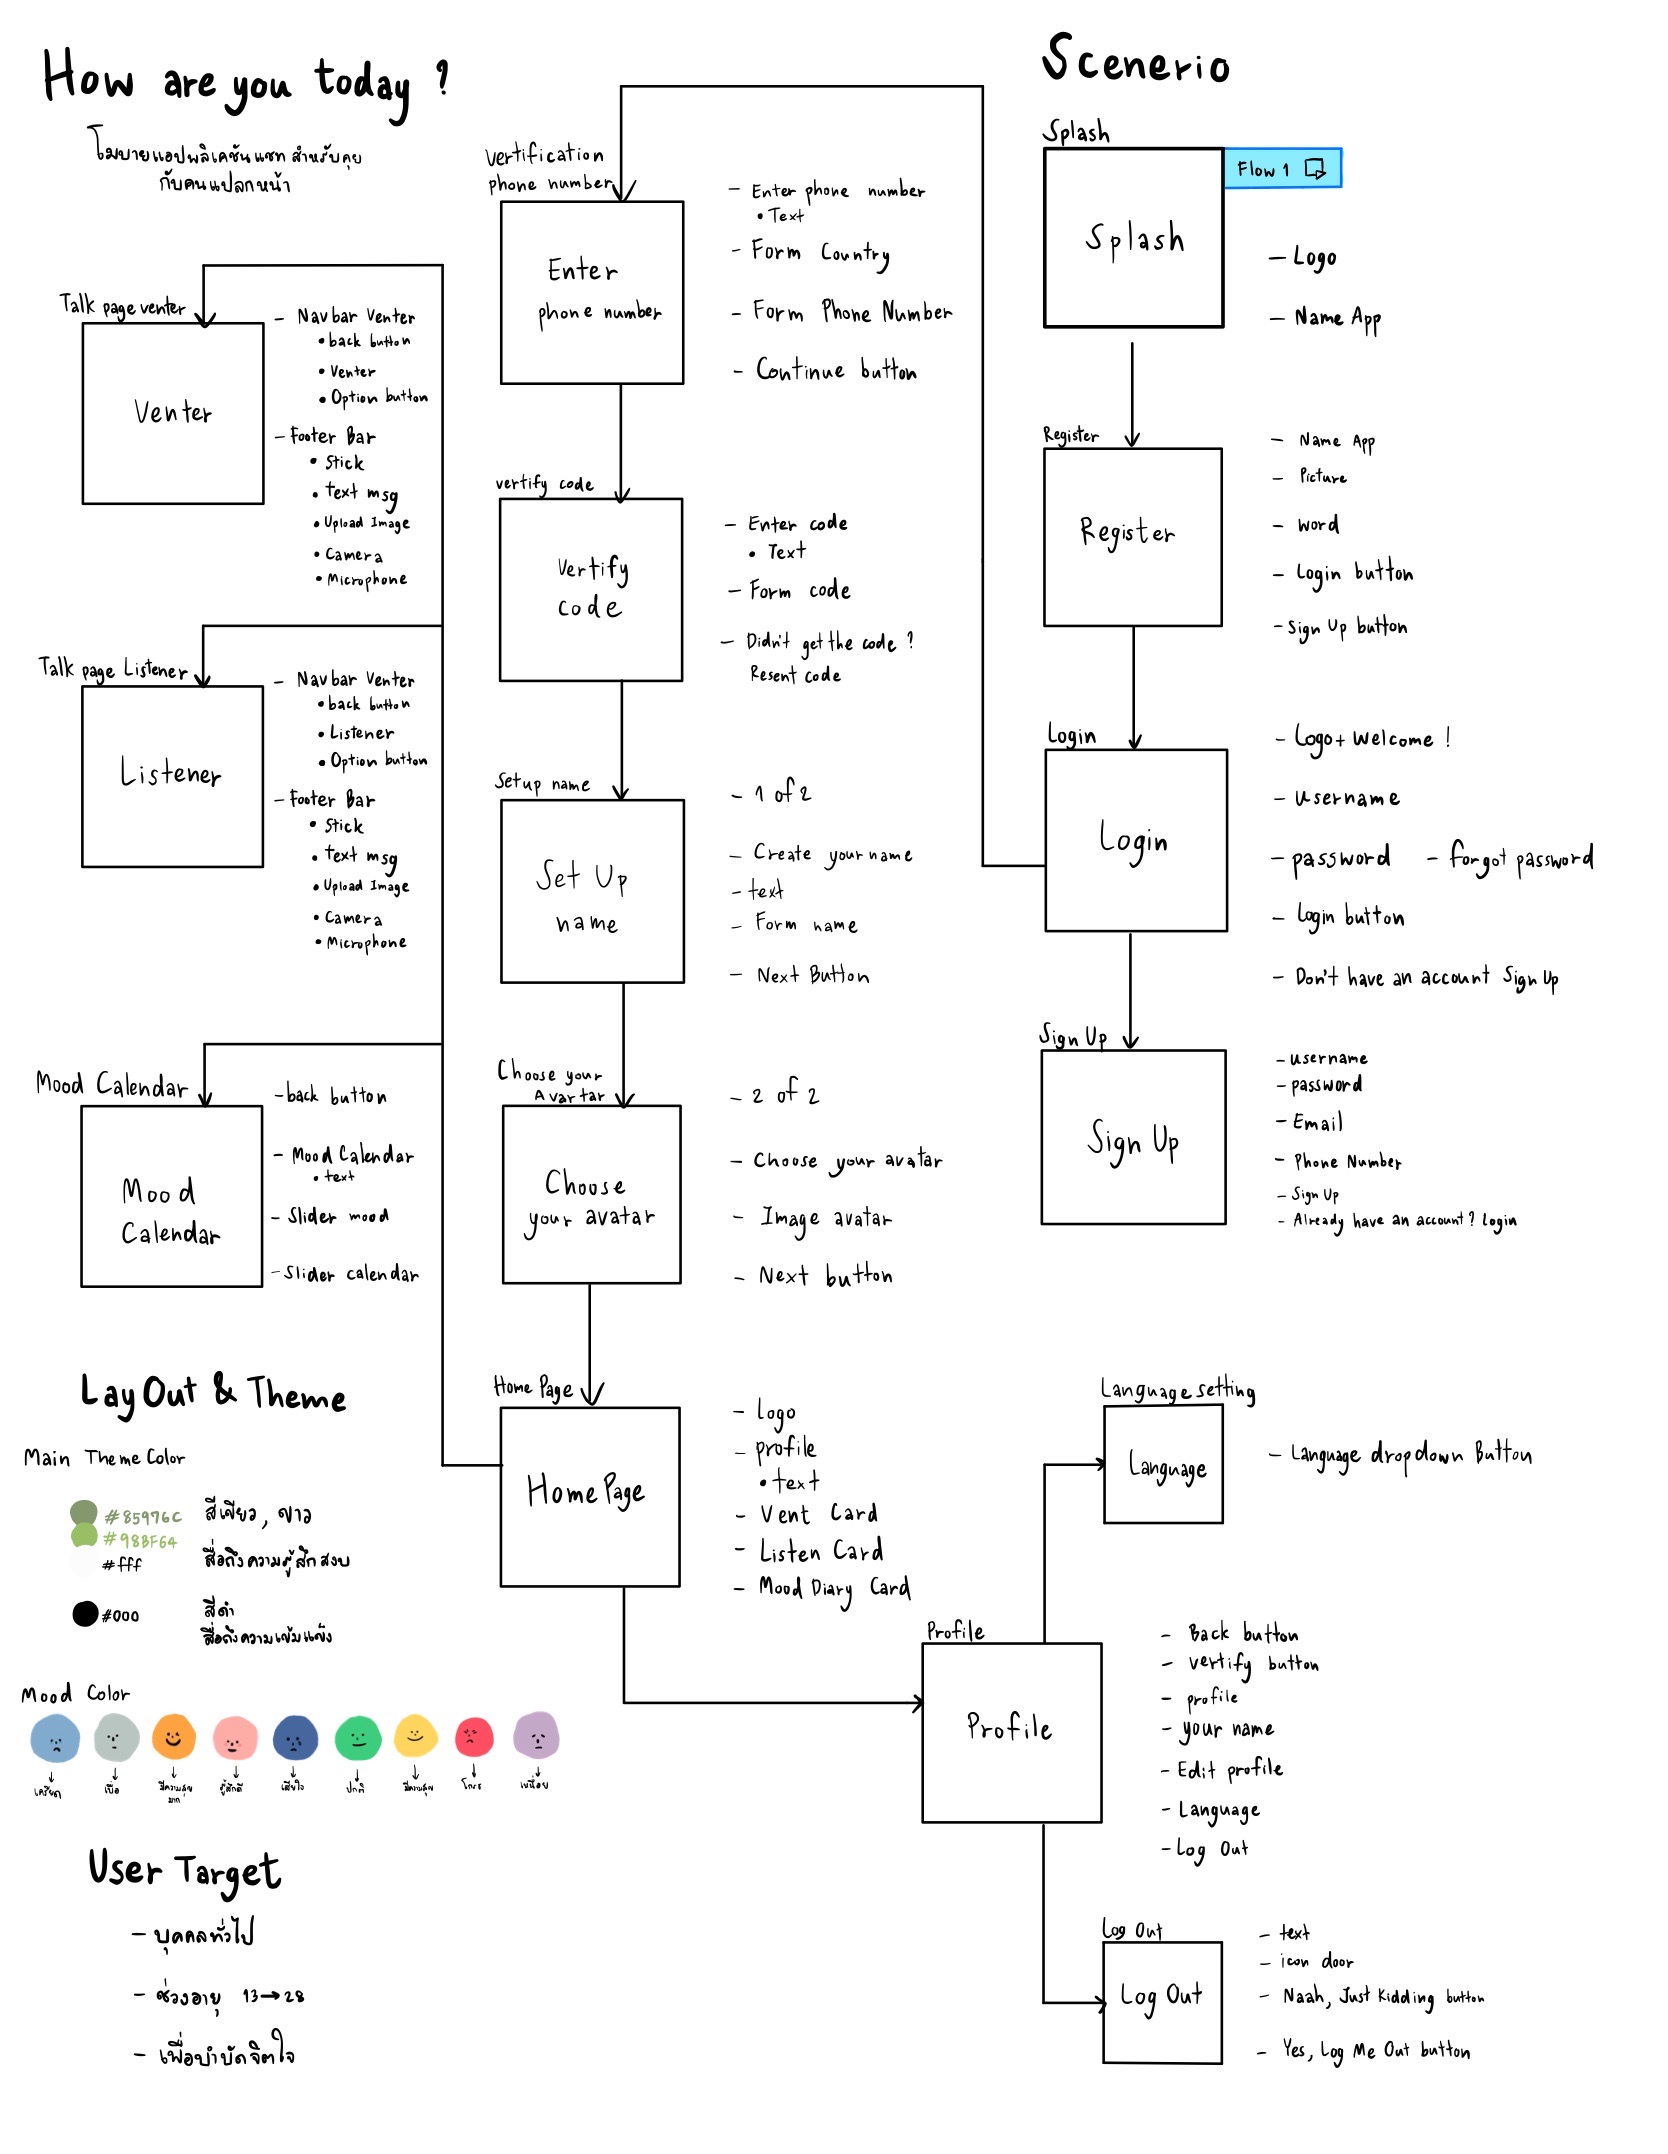 How are you today ?
โมบายแอปพลิเคชันแชท สำหรับคุย
กับคนแปลกหน้า
Talk page venter
Venter
- Navbar Venter
• back button
• Venter
• Option button
- Footer Bar
• Stick
• Text msg
• Upload Image
• Camera
• Microphone
Talk page Listener
Listener
- Navbar Venter
• back button
• Listener
• Option button
- Footer Bar
• Stick
• Text msg
• Upload Image
• Camera
• Microphone
Mood Calendar
Mood
Calendar
- back button
- Mood Calendar
• text
- Slider mood
- Slider calendar
Lay Out & Theme
Main Theme Color
#85976C
#98BF64
#fff
สีเขียว, ขาว
สื่อถึงความรู้สึกสงบ
#000
สีดำ
สื่อถึงความเข้มแข็ง
Mood Color
เครียด
เบื่อ
มีความสุข
มาก
รู้สึกดี
เสียใจ
ปกติ
มีความสุข
โกรธ
เหนื่อย
User Target
- บุคคลทั่วไป
- ช่วงอายุ 13→28
- เพื่อบำบัดจิตใจ
Vertification
phone number
Enter
phone number
- Enter phone number
• Text
- Form Country
- Form Phone Number
- Continue button
vertify code
Vertify
code
- Enter code
• Text
- Form code
- Didn't get the code ?
Resent code
Setup name
Set Up
name
- 1 of 2
- Create your name
- text
- Form name
- Next Button
Choose your
Avartar
Choose
your avatar
- 2 of 2
- Choose your avatar
- Image avatar
- Next button
Home Page
Home Page
- Logo
- profile
• text
- Vent Card
- Listen Card
- Mood Diary Card
Scenerio
Splash
Splash
Flow 1
- Logo
- Name App
Register
Register
- Name App
- Picture
- word
- Login button
- Sign Up button
Login
Login
- Logo + Welcome !
- username
- password - forgot password
- Login button
- Don't have an account Sign Up
Sign Up
Sign Up
- username
- password
- Email
- Phone Number
- Sign Up
- Already have an account? Login
Language setting
Language
- Language dropdown Button
Profile
Profile
- Back button
- vertify button
- profile
- your name
- Edit profile
- Language
- Log Out
Log Out
Log Out
- text
- icon door
- Naah, Just Kidding button
- Yes, Log Me Out button